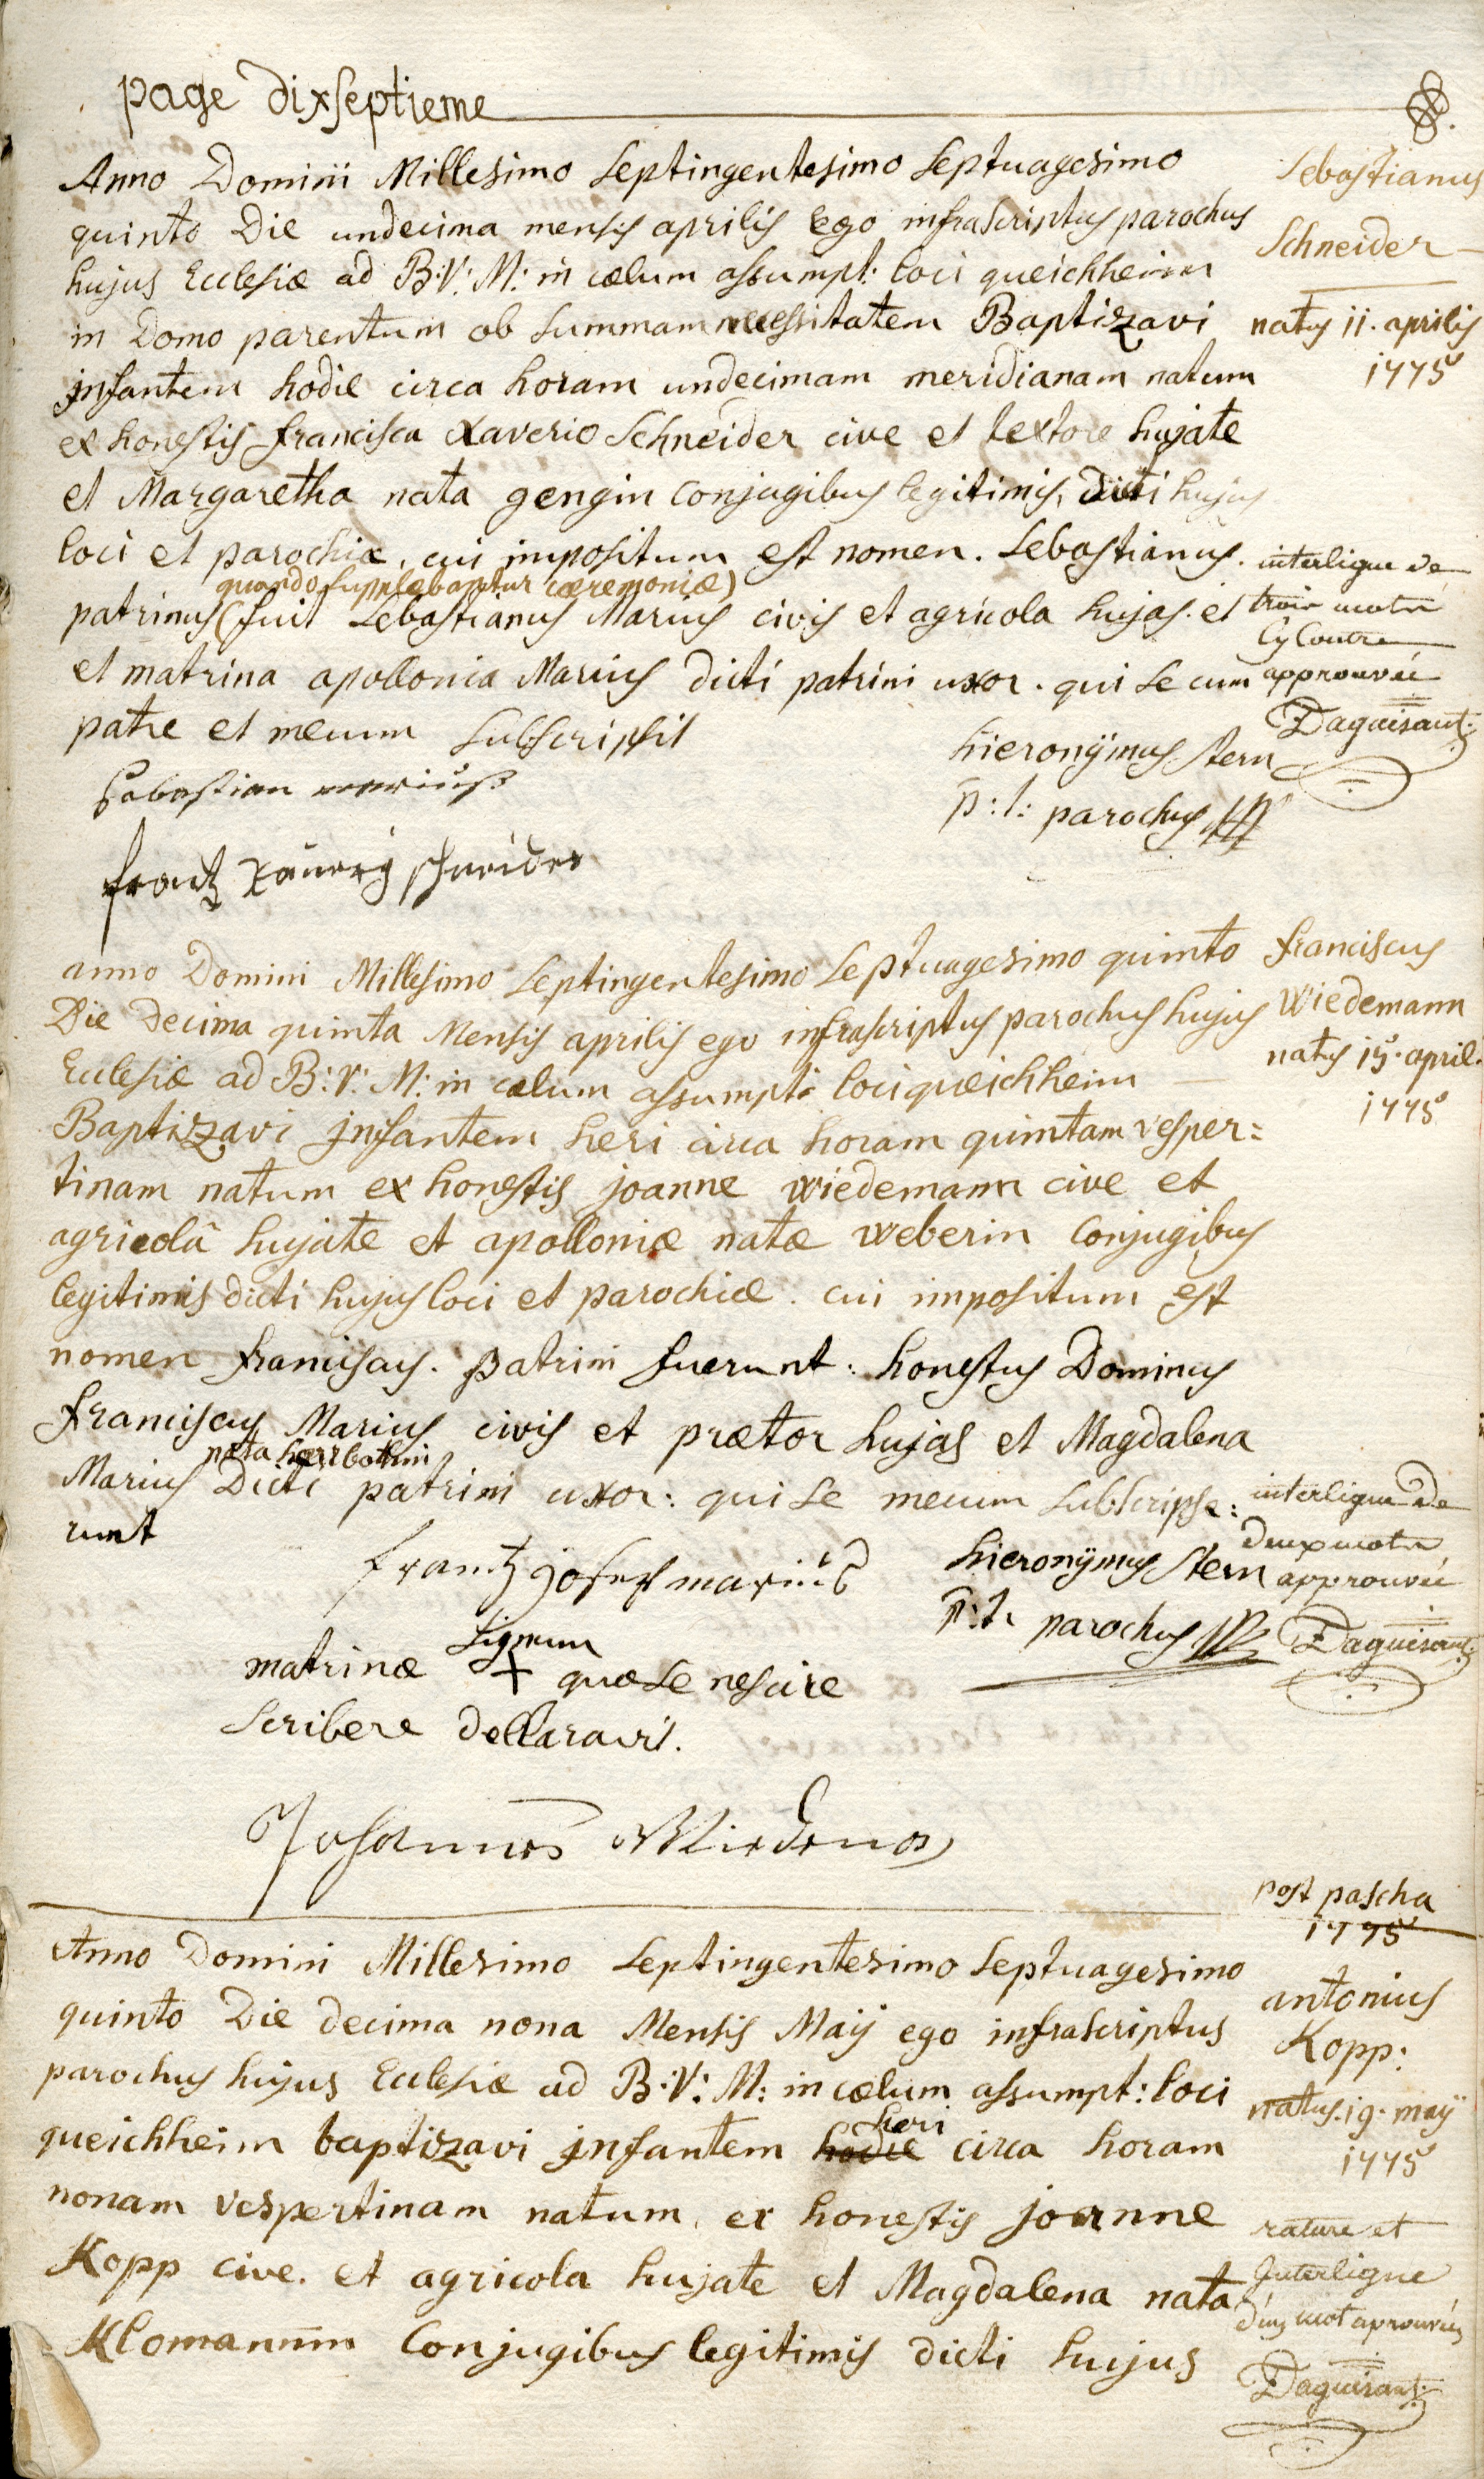 page dixseptieme
Anno Domini Millesimo Septingentesimo Septuagesimo
quinto Die undecima mensis aprilis Ego infrascriptus parochus
hujus Ecclesiæ ad B: V: M: in cælum assumpt: loci queichheim
in Domo parentum ob summam necessitatem Baptizavi
jnfantem hodie circa horam undecimam meridianam natum
ex honestis francisco Xaverio Schneider cive et textore hujate
et Margaretha nata gengin conjugibus legitimis, dicti hujus
loci et parochiæ. cui impositum est nomen. Sebastianus.
quando supplebantur cæremoniæ)
patrinus (fuit Sebastianus Marius civis et agricola hujas. et
et matrina apollonia Marius dicti patrini uxor. qui se cum
patre et mecum subscripsit
Sebastian mariuß
frantz Xaveri schneider
hieronÿmus Stern
p: t: parochus
Sebastianus
Schneider
natus 11. aprilis
1775
interligne de
trois mots
Cy Contre
approuvée
Daguisant
anno Domini Millesimo Septingentesimo Septuagesimo quinto
Die Decima quinta Mensis aprilis ego infrascriptus parochus hujus
Ecclesiæ ad B: V: M: in cælum assumpt: loci queichheim
Baptizzavi jnfantem heri circa horam quintam vesper:
tinam natum ex honestis joanne wiedemann cive et
agricolâ hujate et apolloniæ natæ weberin Conjugibus
legitimis dicti hujus loci et parochiæ. cui impositum est
nomen franciscus. patrini fuerunt: honestus Dominus
franciscus Marius civis et prætor hujas et Magdalena
Marius Dicti patrini uxor: qui se mecum subscripse:
runt
frantz Josef marius
hieronÿmus Stern
p: t: parochus
signum
matrinæ + quæ se nescire
scribere declaravit.
Johannes Wiedeman
franciscus
Wiedemann
natus 15. april.
1775
interligne de
deux mots
approuvée
Daguisant
post pascha
1775
Anno Domini Millesimo Septingentesimo Septuagesimo
quinto Die decima nona Mensis Maÿ ego infrascriptus
parochus hujus Ecclesiæ ad B: V: M: in cælum assumpt: loci
heri
queichheim baptizavi jnfantem hodie circa horam
nonam vespertinam natum. ex honestis joanne
Kopp cive. et agricola hujate et Magdalena nata
Klomannin Conjugibus legitimis dicti hujus
antonius
Kopp:
natus. 19. maÿ
1775
rature et
Interligne
d'un mot aprouvées
Daguisant